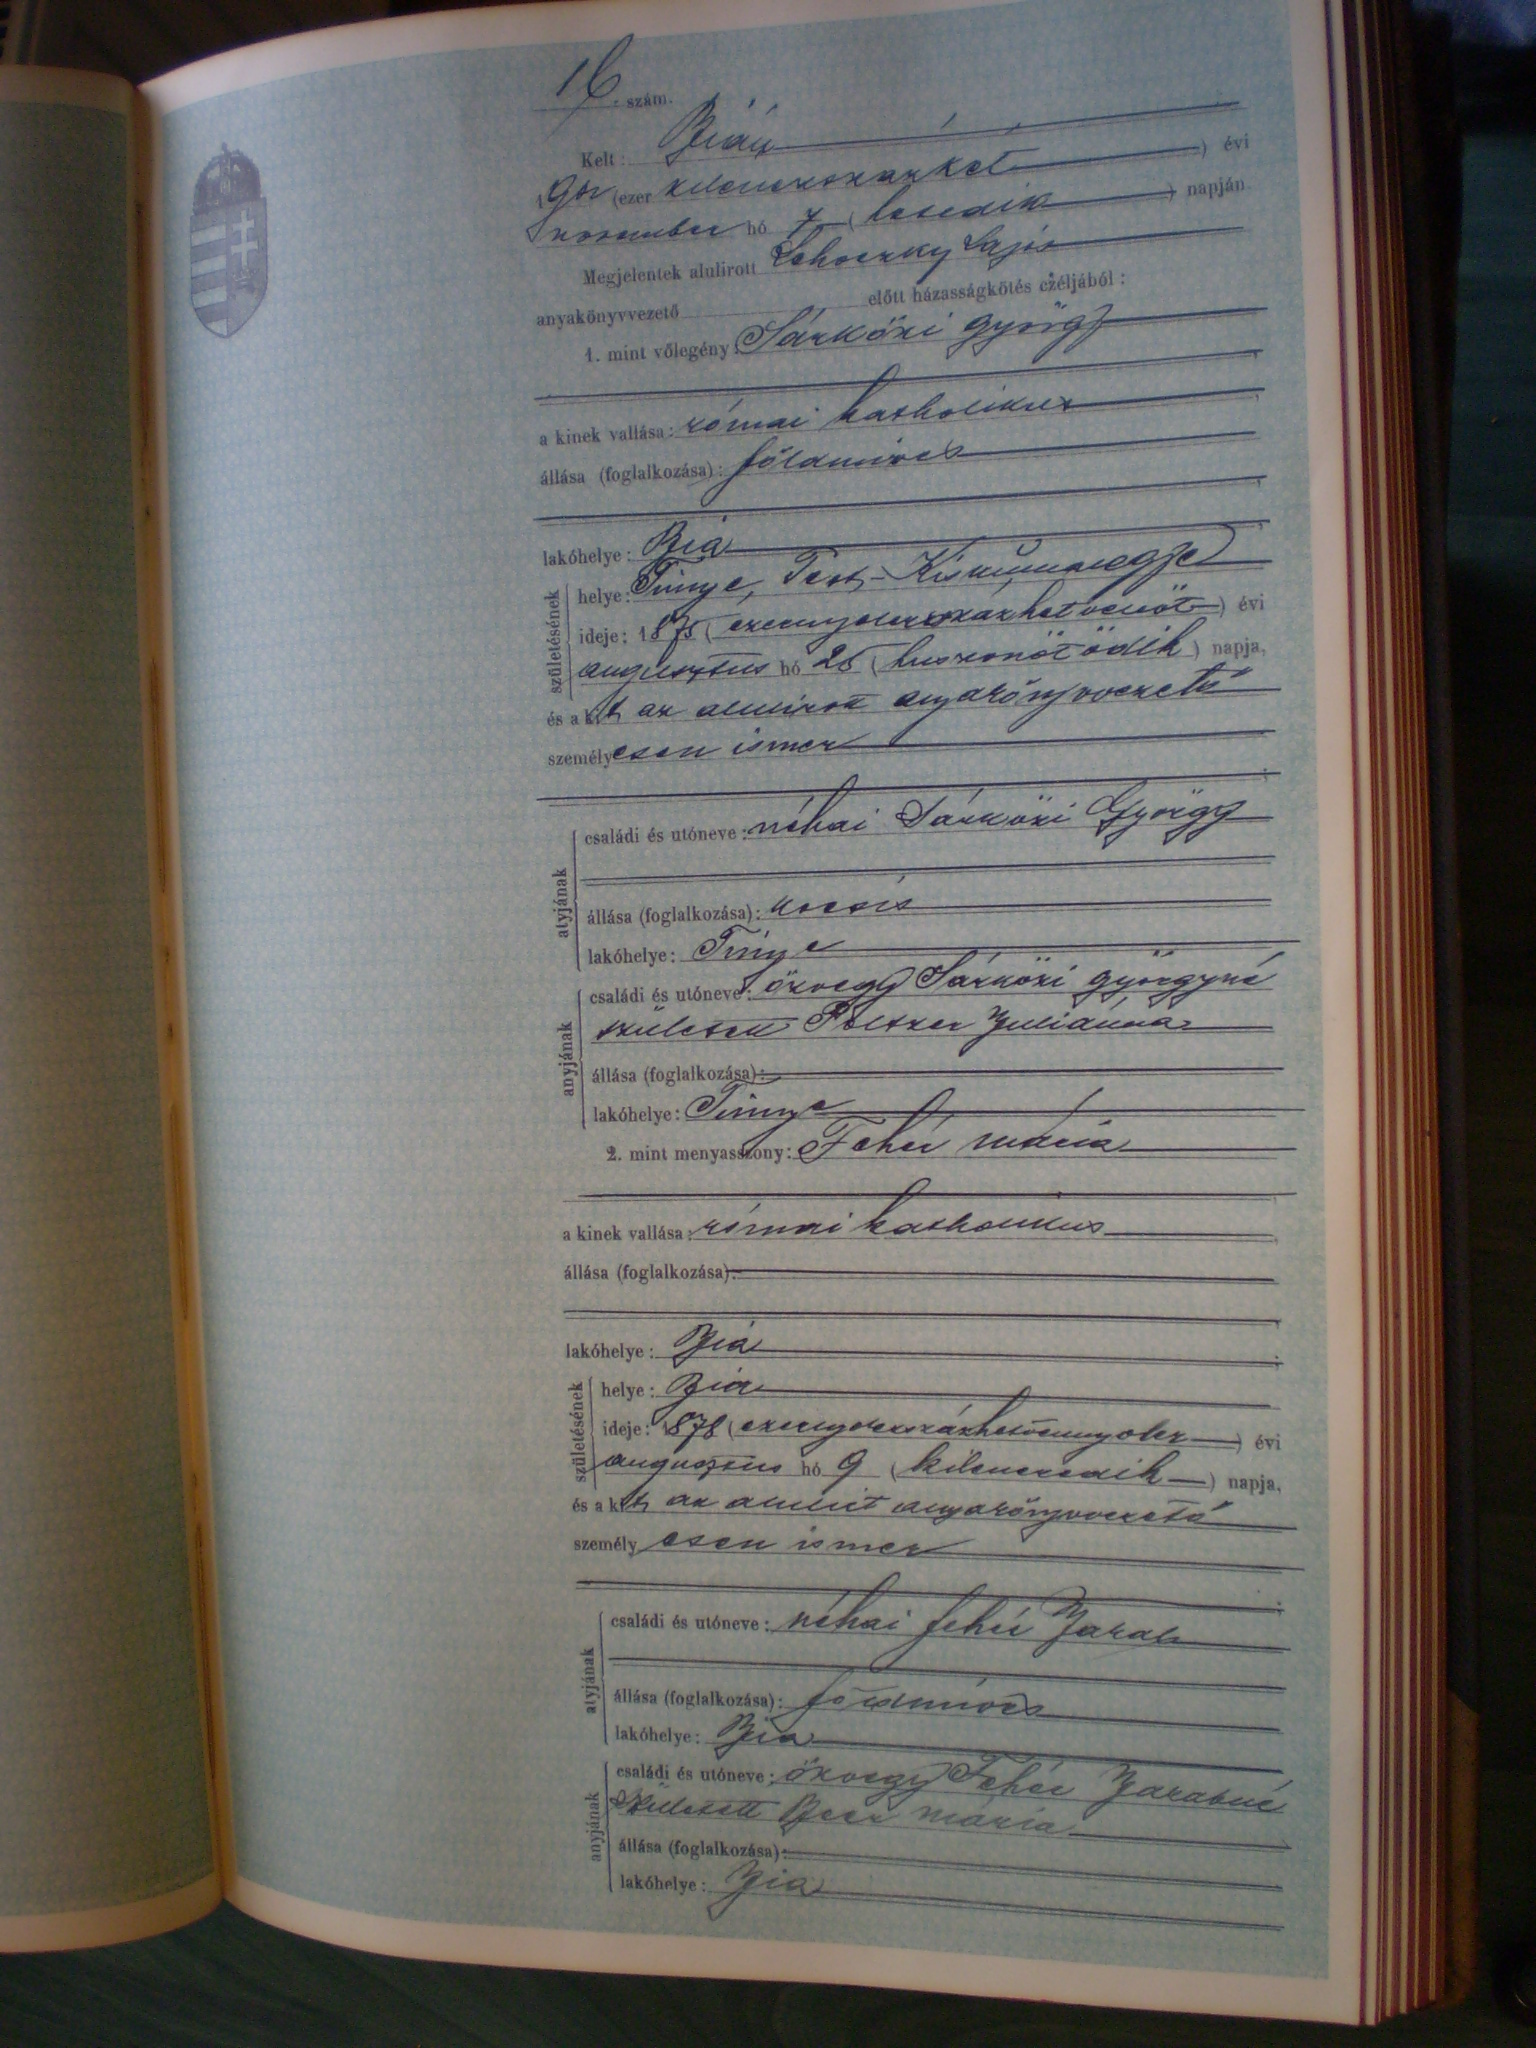 16. szám.
Kelt: Bián
1902 (ezer kilencszázkét) évi
november hó 7 (hetedik) napján
Megjelentek alulirott Lehoczky Lajos
anyakönyvvezető előtt házasságkötés czéljából:
1. mint vőlegény: Sárközi György
a kinek vallása: római katholikus
állása (foglalkozása): földmives
lakóhelye: Bia
születésének
helye: Tinnye, Pest-Kiskunmegye
ideje: 1875 (ezernyolczszázhetvenöt) évi
augusztus hó 25 (huszonötödik) napja,
és a kit az alulirott anyakönyvvezető
személyesen ismer
atyjának
családi és utóneve: néhai Sárközi György
állása (foglalkozása): kocsis
lakóhelye: Tinnye
anyjának
családi és utóneve: özvegy Sárközi Györgyné
született Póltzer Juliánna
állása (foglalkozása):
lakóhelye: Tinnye
2. mint menyasszony: Fehér Mária
a kinek vallása: római katholikus
állása (foglalkozása):
lakóhelye: Bia
születésének
helye: Bia
ideje: 1878 (ezernyolczszázhetvennyolcz) évi
augusztus hó 9 (kilenczedik) napja,
és a kit az alulirt anyakönyvvezető
személyesen ismer
atyjának
családi és utóneve: néhai Fehér Jakab
állása (foglalkozása): földmives
lakóhelye: Bia
anyjának
családi és utóneve: özvegy Fehér Jakabné
született Beer Mária
állása (foglalkozása):
lakóhelye: Bia